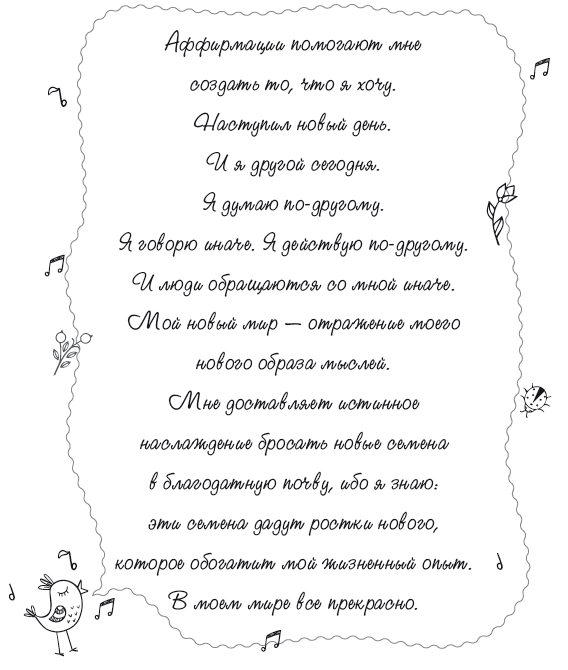 Аффирмации помогают мне
создать то, что я хочу.
Наступил новый день.
И я другой сегодня.
Я думаю по-другому.
Я говорю иначе. Я действую по-другому.
И люди обращаются со мной иначе.
Мой новый мир — отражение моего
нового образа мыслей.
Мне доставляет истинное
наслаждение бросать новые семена
в благодатную почву, ибо я знаю:
эти семена дадут ростки нового,
которое обогатит мой жизненный опыт.
В моем мире все прекрасно.